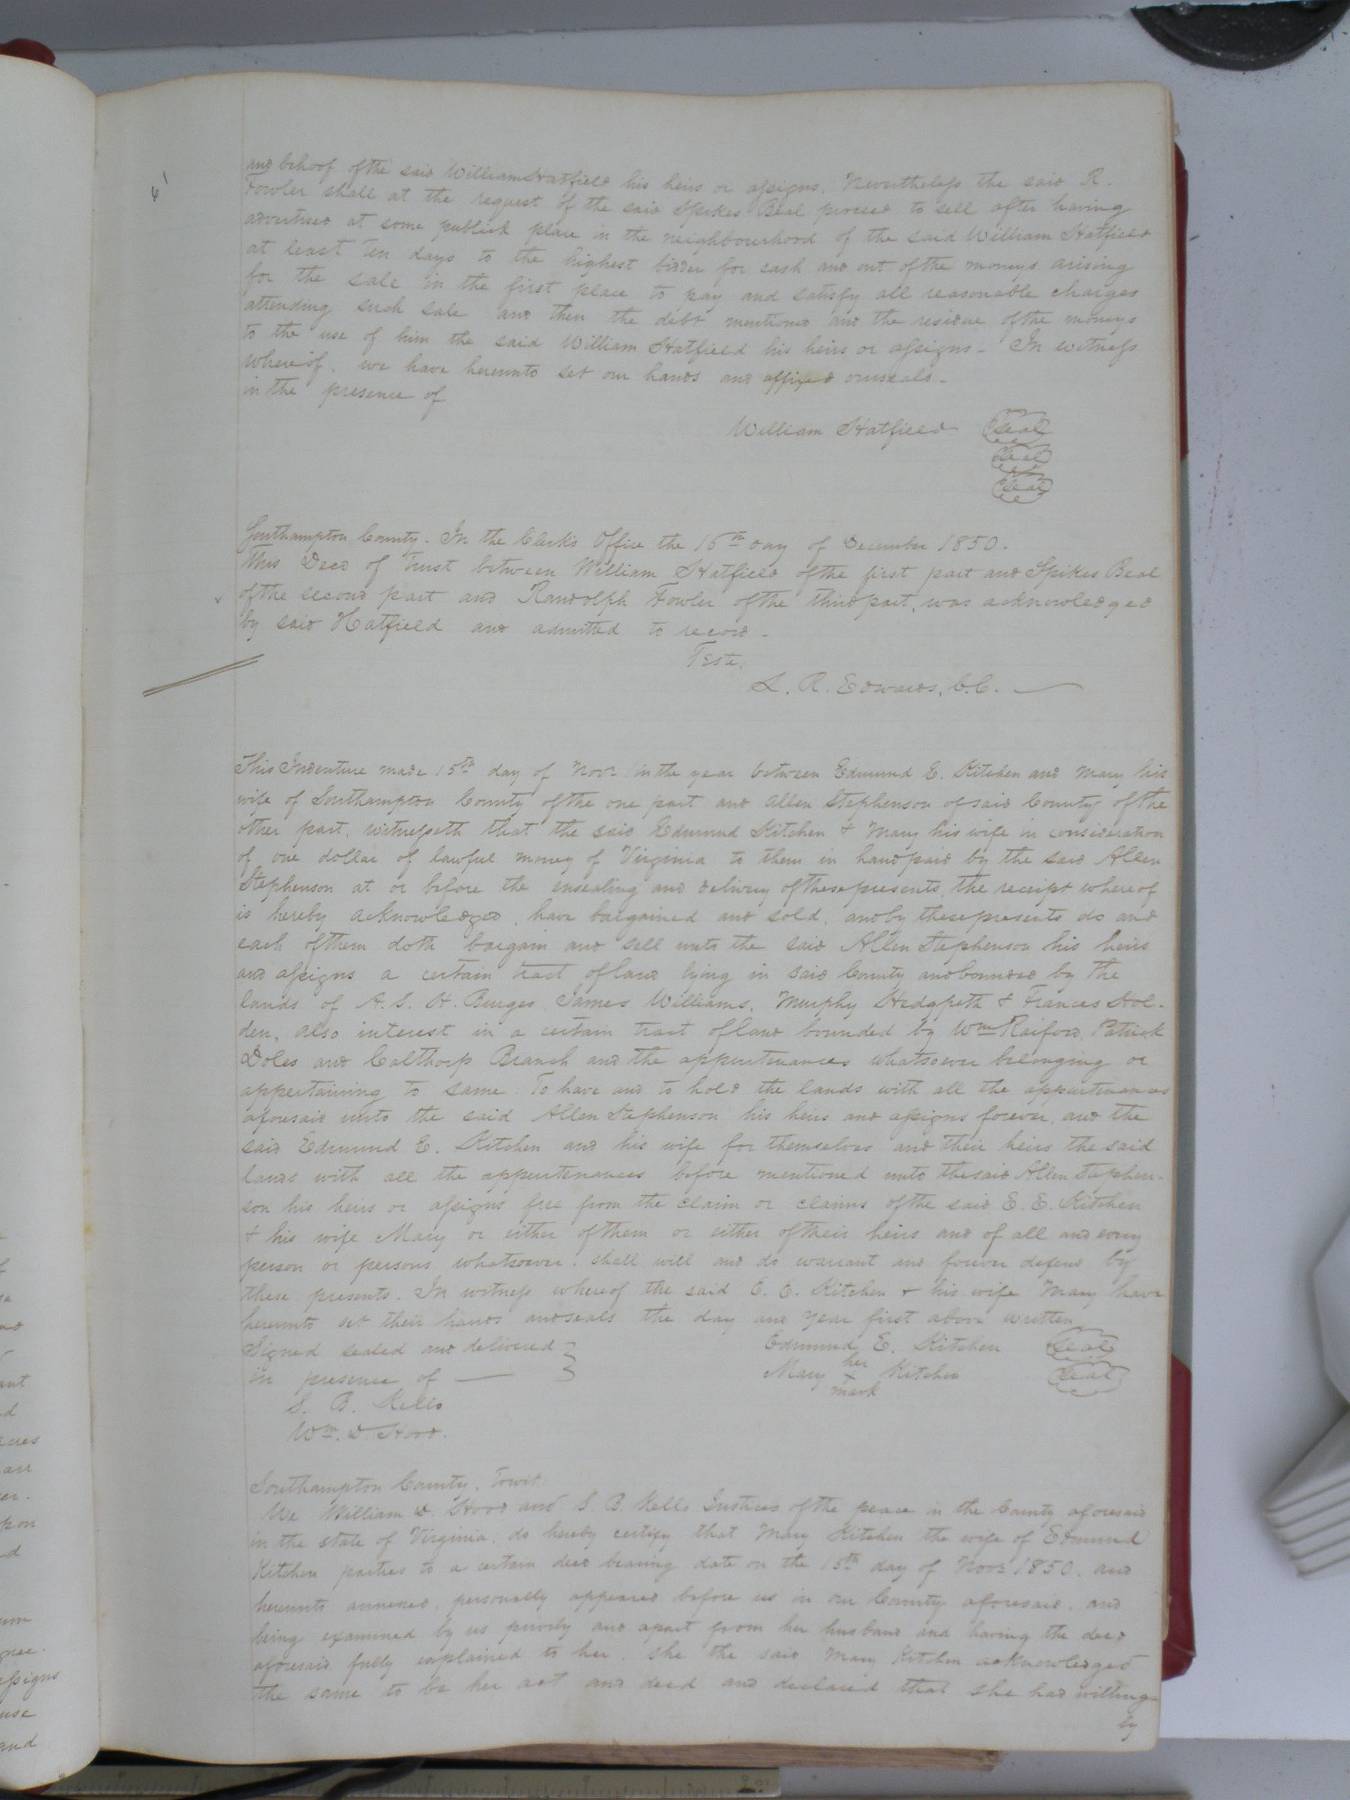 61
and behoof of the said William Hatfield his heirs or assigns. Nevertheless the said R.
Fowler shall at the request of the said Spikes Beal proceed to sell after having
advertised at some publick place in the neighbourhood of the said William Hatfield
at least ten days to the highest bidder for cash and out of the moneys arising
for the sale in the first place to pay and satisfy all reasonable charges
attending such sale and then the debt mentioned and the residue of the moneys
to the use of him the said William Hatfield his heirs or assigns - In witness
whereof, we have hereunto set our hands and affixed our seals -
in the presence of
William Hatfield Seal
Seal
Seal
Southampton County. In the Clerk's Office the 16th day of December 1850.
This Deed of Trust between William Hatfield of the first part and Spikes Beal
of the second part and Randolph Fowler of the third part, was acknowledged
by said Hatfield and admitted to record -
Teste,
L. R. Edwards, C.C.
This Indenture made 15th day of Novr in the year between Edmund E. Kitchen and Mary his
wife of Southampton County of the one part and Allen Stephenson of said County of the
other part, witnesseth that the said Edmund Kitchen & Mary his wife in consideration
of one dollar of lawful money of Virginia to them in hand paid by the said Allen
Stephenson at or before the ensealing and delivery of these presents, the receipt whereof
is hereby acknowledged, have bargained and sold, and by these presents do and
each of them doth bargain and sell unto the said Allen Stephenson his heirs
and assigns a certain tract of land lying in said County and bounded by the
lands of A. S. H. Burges, James Williams, Murphy Hedgpeth & Frances Hol-
den, also interest in a certain tract of land bounded by Wm Raiford, Patrick
Doles and Calthorp Branch and the appurtenances whatsoever belonging or
appertaining to same. To have and to hold the lands with all the appurtenances
aforesaid unto the said Allen Stephenson his heirs and assigns forever, and the
said Edmund E. Kitchen and his wife for themselves and their heirs the said
lands with all the appurtenances before mentioned unto the said Allen Stephen-
son his heirs or assigns free from the claim or claims of the said E. E. Kitchen
& his wife Mary or either of them or either of their heirs and of all and every
person or persons whatsoever, shall will and do warrant and forever defend by
these presents. In witness whereof the said E. E. Kitchen & his wife Mary have
hereunto set their hands and seals the day and year first above written
Signed sealed and delivered } Edmund E. Kitchen Seal
in presence of Mary her + mark Kitchen Seal
S. B. Kello
Wm. D Hood.
Southampton County, Towit
We William D. Hood and S B. Kello Justices of the peace in the County aforesaid
in the state of Virginia, do hereby certify that Mary Kitchen the wife of Edmund
Kitchen parties to a certain deed bearing date on the 15th day of Novr 1850, and
hereunto annexed, personally appeared before us in our County aforesaid, and
being examined by us privily and apart from her husband and having the deed
aforesaid fully explained to her, she the said Mary Kitchen acknowledged
the same to be her act and deed and declared that she had willing-
ly